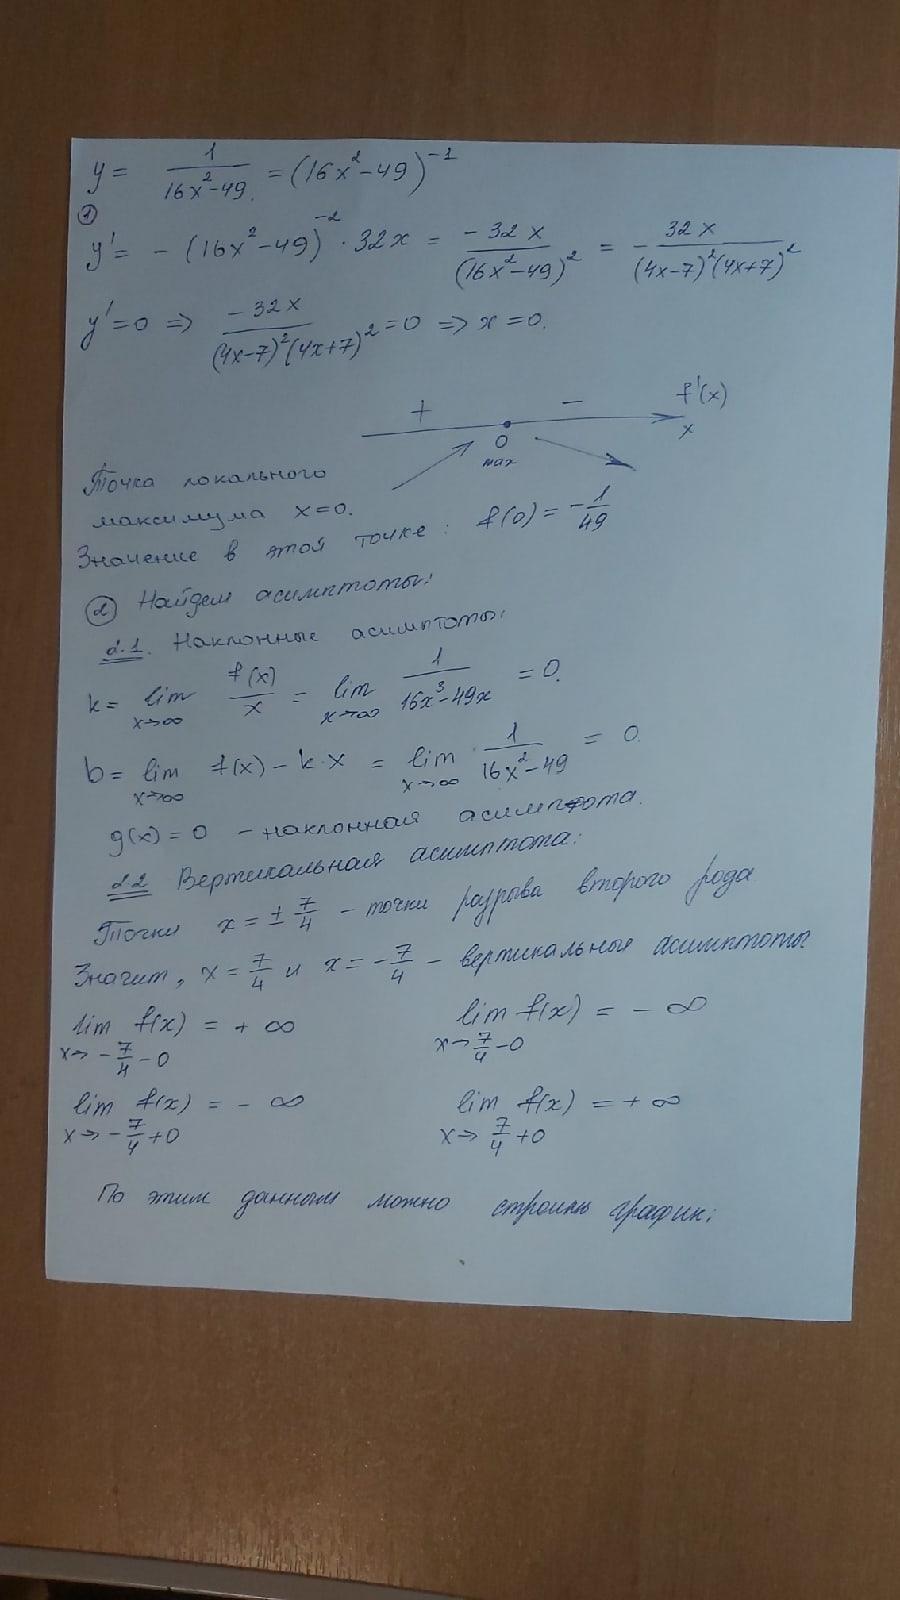 y = 1/(16x²-49) = (16x²-49)⁻¹
①
y' = -(16x²-49)⁻² · 32x = -32x/(16x²-49)² = -32x/((4x-7)²(4x+7)²)
y'=0 => -32x/((4x-7)²(4x+7)²) = 0 => x=0.
+ - f'(x)
0 x
max
Точка локального
максимума x=0.
Значение в этой точке: f(0) = -1/49
② Найдем асимптоты:
2.1. Наклонные асимптоты:
k = lim x→∞ f(x)/x = lim x→∞ 1/(16x³-49x) = 0.
b = lim x→∞ f(x) - k·x = lim x→∞ 1/(16x²-49) = 0.
g(x) = 0 - наклонная асимптота.
2.2 Вертикальная асимптота:
Точки x = ± 7/4 - точки разрыва второго рода
Значит, x = 7/4 и x = -7/4 - вертикальные асимптоты
lim f(x) = + ∞ lim f(x) = - ∞
x→ -7/4 -0 x→ 7/4 -0
lim f(x) = - ∞ lim f(x) = + ∞
x→ -7/4 +0 x→ 7/4 +0
По этим данным можно строить график: